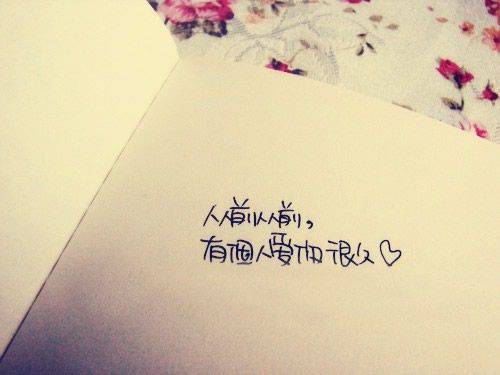 从前从前，
有個人爱你很久♡